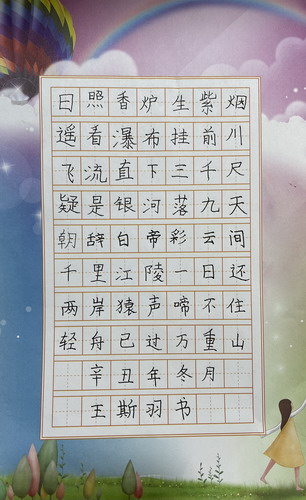 日照香炉生紫烟
遥看瀑布挂前川
飞流直下三千尺
疑是银河落九天
朝辞白帝彩云间
千里江陵一日还
两岸猿声啼不住
轻舟已过万重山
辛丑年冬月
王斯羽书